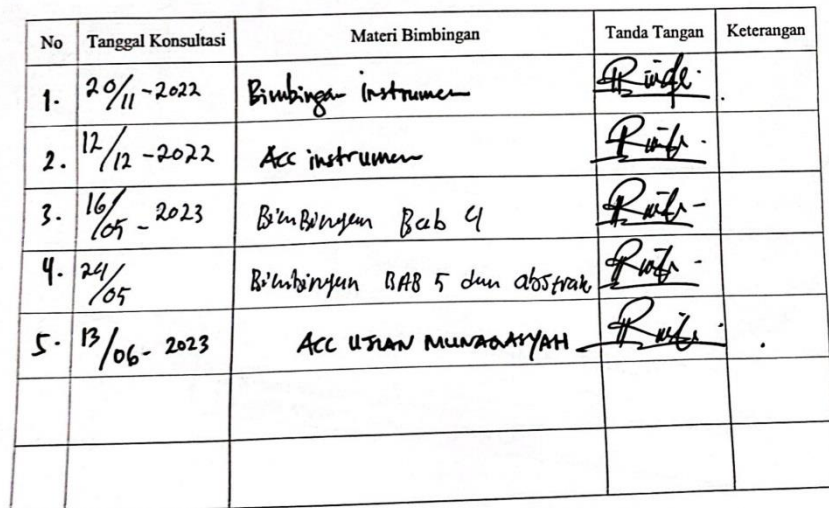 No Tanggal Konsultasi Materi Bimbingan Tanda Tangan Keterangan
1. 20/11-2022 Bimbingan instrumen
2. 12/12-2022 Acc instrumen
3. 16/05-2023 Bimbingan Bab 4
4. 24/05 Bimbingan BAB 5 dan abstrak
5. 13/06-2023 ACC UJIAN MUNAQASYAH